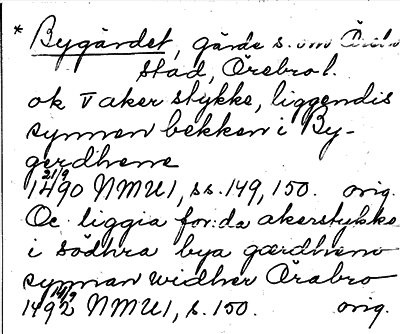 * Bygärdet, gärde s. om Örebro
stad, Örebro l.
ok V aker stykke, liggendis
synnen bekken i By-
gerdhene
21/9
1490 NMU 1, ss. 149, 150. orig.
Oc liggia for:da akerstykke
i södhra bya gærdheno
synnan widher Örabro
14/9
1492 NMU 1, s. 150. orig.